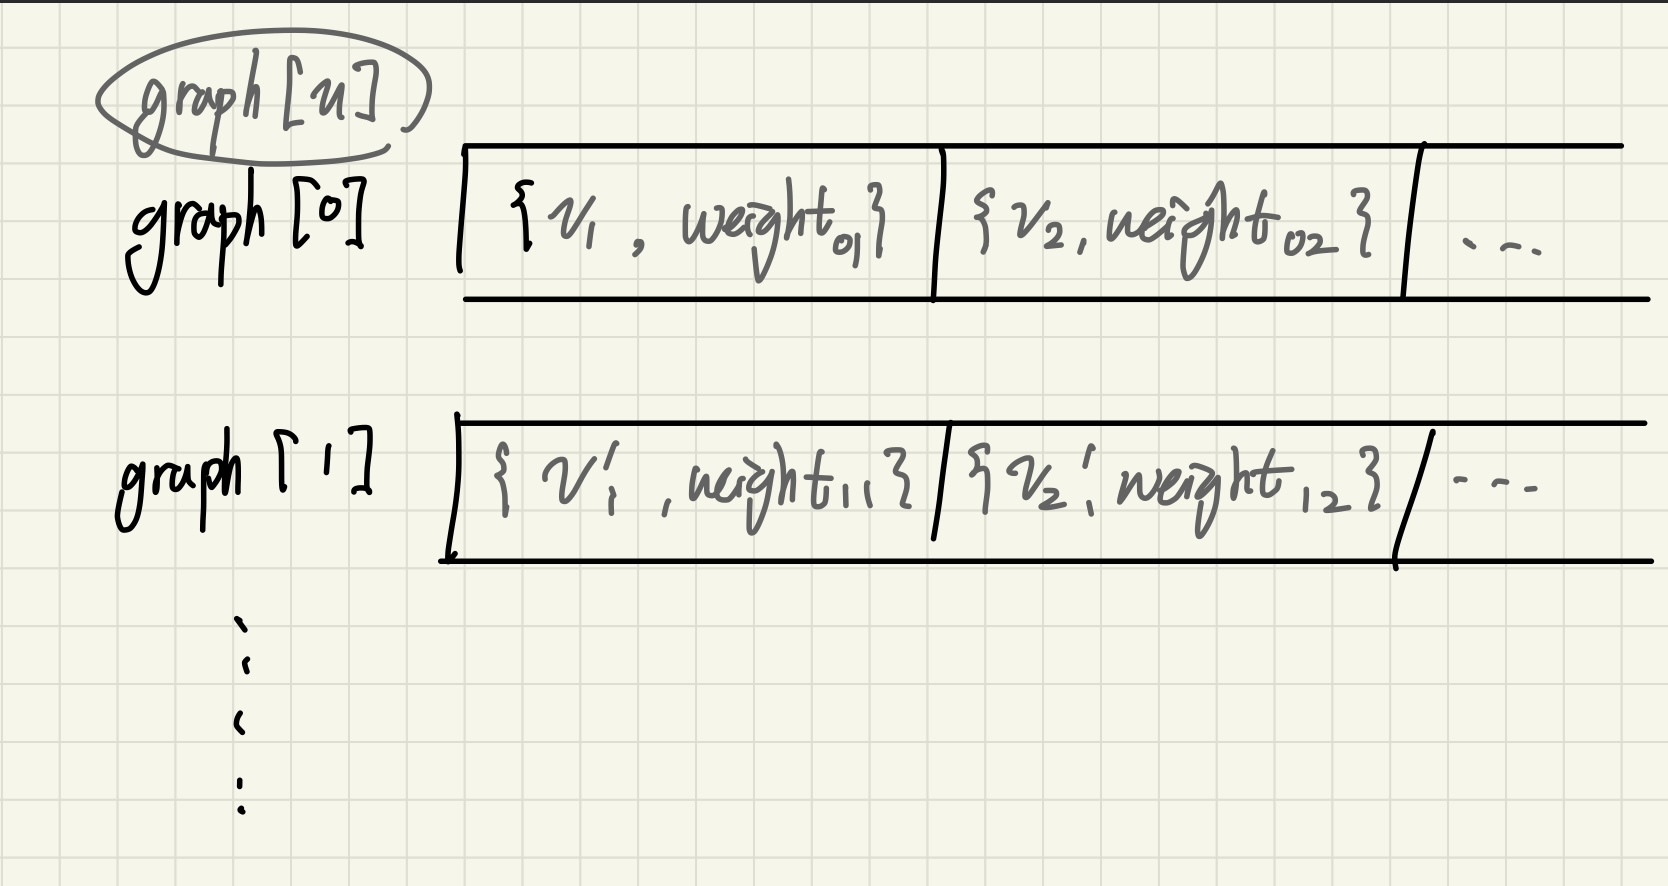 graph[u]
graph[0] {v₁, weight₀₁} {v₂, weight₀₂} ...
graph[1] {v₁', weight₁₁} {v₂', weight₁₂} ...